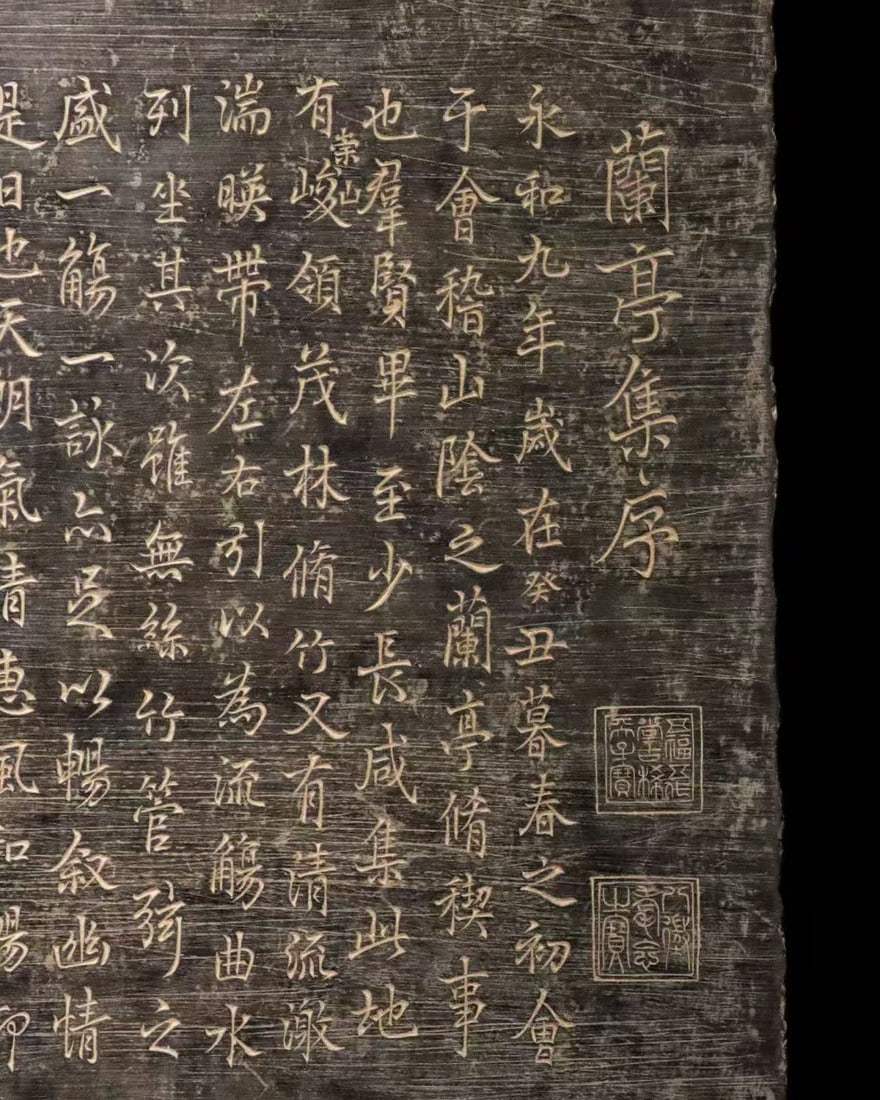 蘭亭集序
五福五代堂古稀天子寶
八徵耄念之寶
永和九年歲在癸丑暮春之初會
于會稽山陰之蘭亭脩稧事
也羣賢畢至少長咸集此地
有崇山峻領茂林脩竹又有清流激
湍暎帶左右引以為流觴曲水
列坐其次雖無絲竹管弦之
盛一觴一詠亦足以暢叙幽情
是日也天朗氣清惠風和暢仰